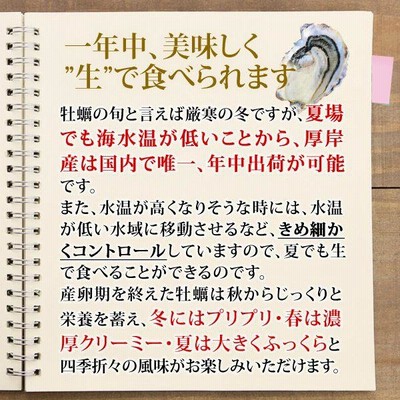 一年中、美味しく
”生”で食べられます
牡蠣の旬と言えば厳寒の冬ですが、夏場
でも海水温が低いことから、厚岸
産は国内で唯一、年中出荷が可能
です。
また、水温が高くなりそうな時には、水温
が低い水域に移動させるなど、きめ細か
くコントロールしていますので、夏でも生
で食べることができるのです。
産卵期を終えた牡蠣は秋からじっくりと
栄養を蓄え、冬にはプリプリ・春は濃
厚クリーミー・夏は大きくふっくらと
四季折々の風味がお楽しみいただけます。